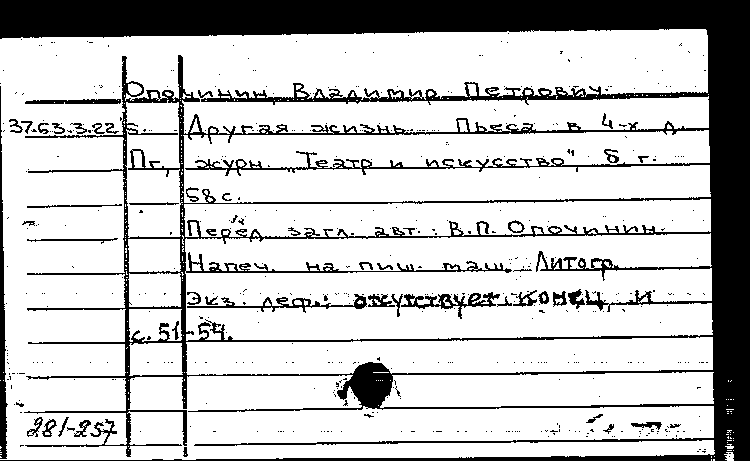 Опочинин, Владимир Петрович.
37.63.3.225. Другая жизнь. Пьеса в 4-х д.
Пг., журн. „Театр и искусство", б. г.
58 с.
Перед загл. авт.: В.П. Опочинин.
Напеч. на пиш. маш. Литогр.
Экз. деф.: отсутствует конец и
с. 51-54.
281-257